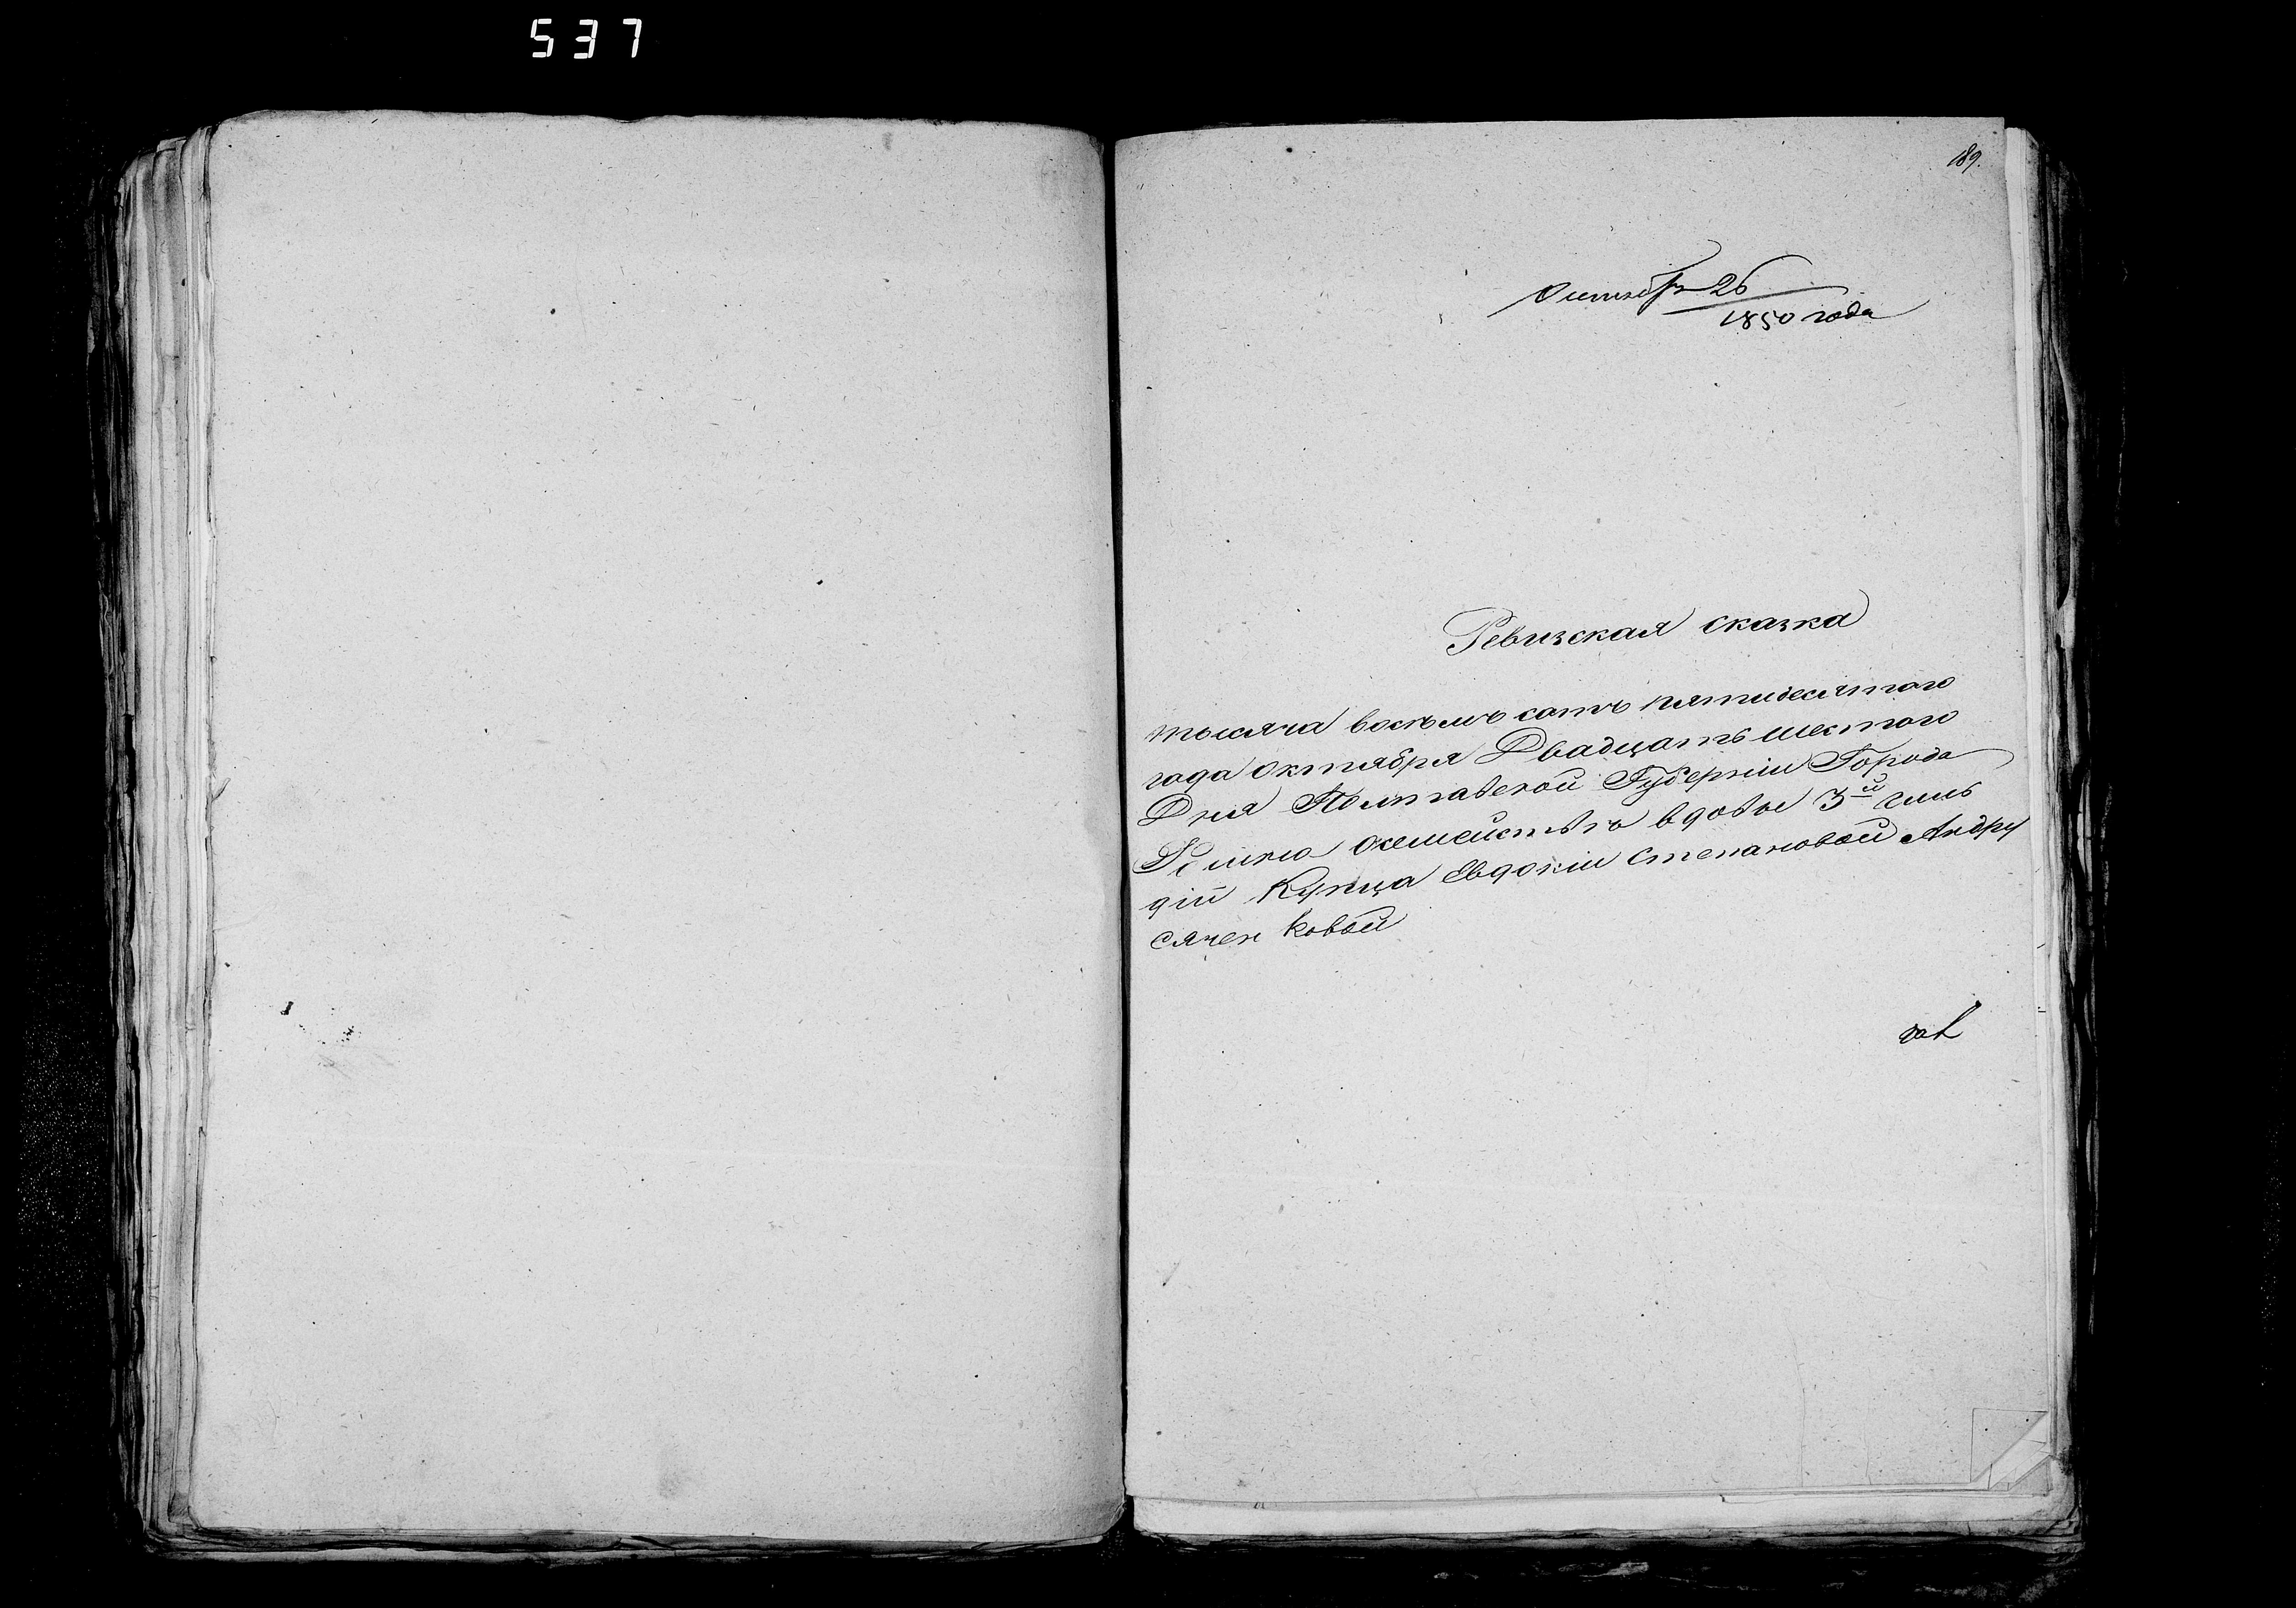 537
189.
Октября 26
1850 года
Ревизская сказка
тысяча восемь сотъ пятидесятого
года октября Двадцать шестого
Дня Полтавской Губерніи Города
осемействѣ вдовы 3й гиль
діи Купца Евдокіи Степановой Андру
сячен ковой